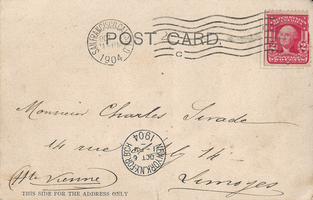 SAN FRANCISCO, CAL.
1904
POST CARD.
C
Monsieur Charles
14 rue 14
NEW YORK, N.Y.
OCT 6
1904
Limoges
Hte Vienne
THIS SIDE FOR THE ADDRESS ONLY